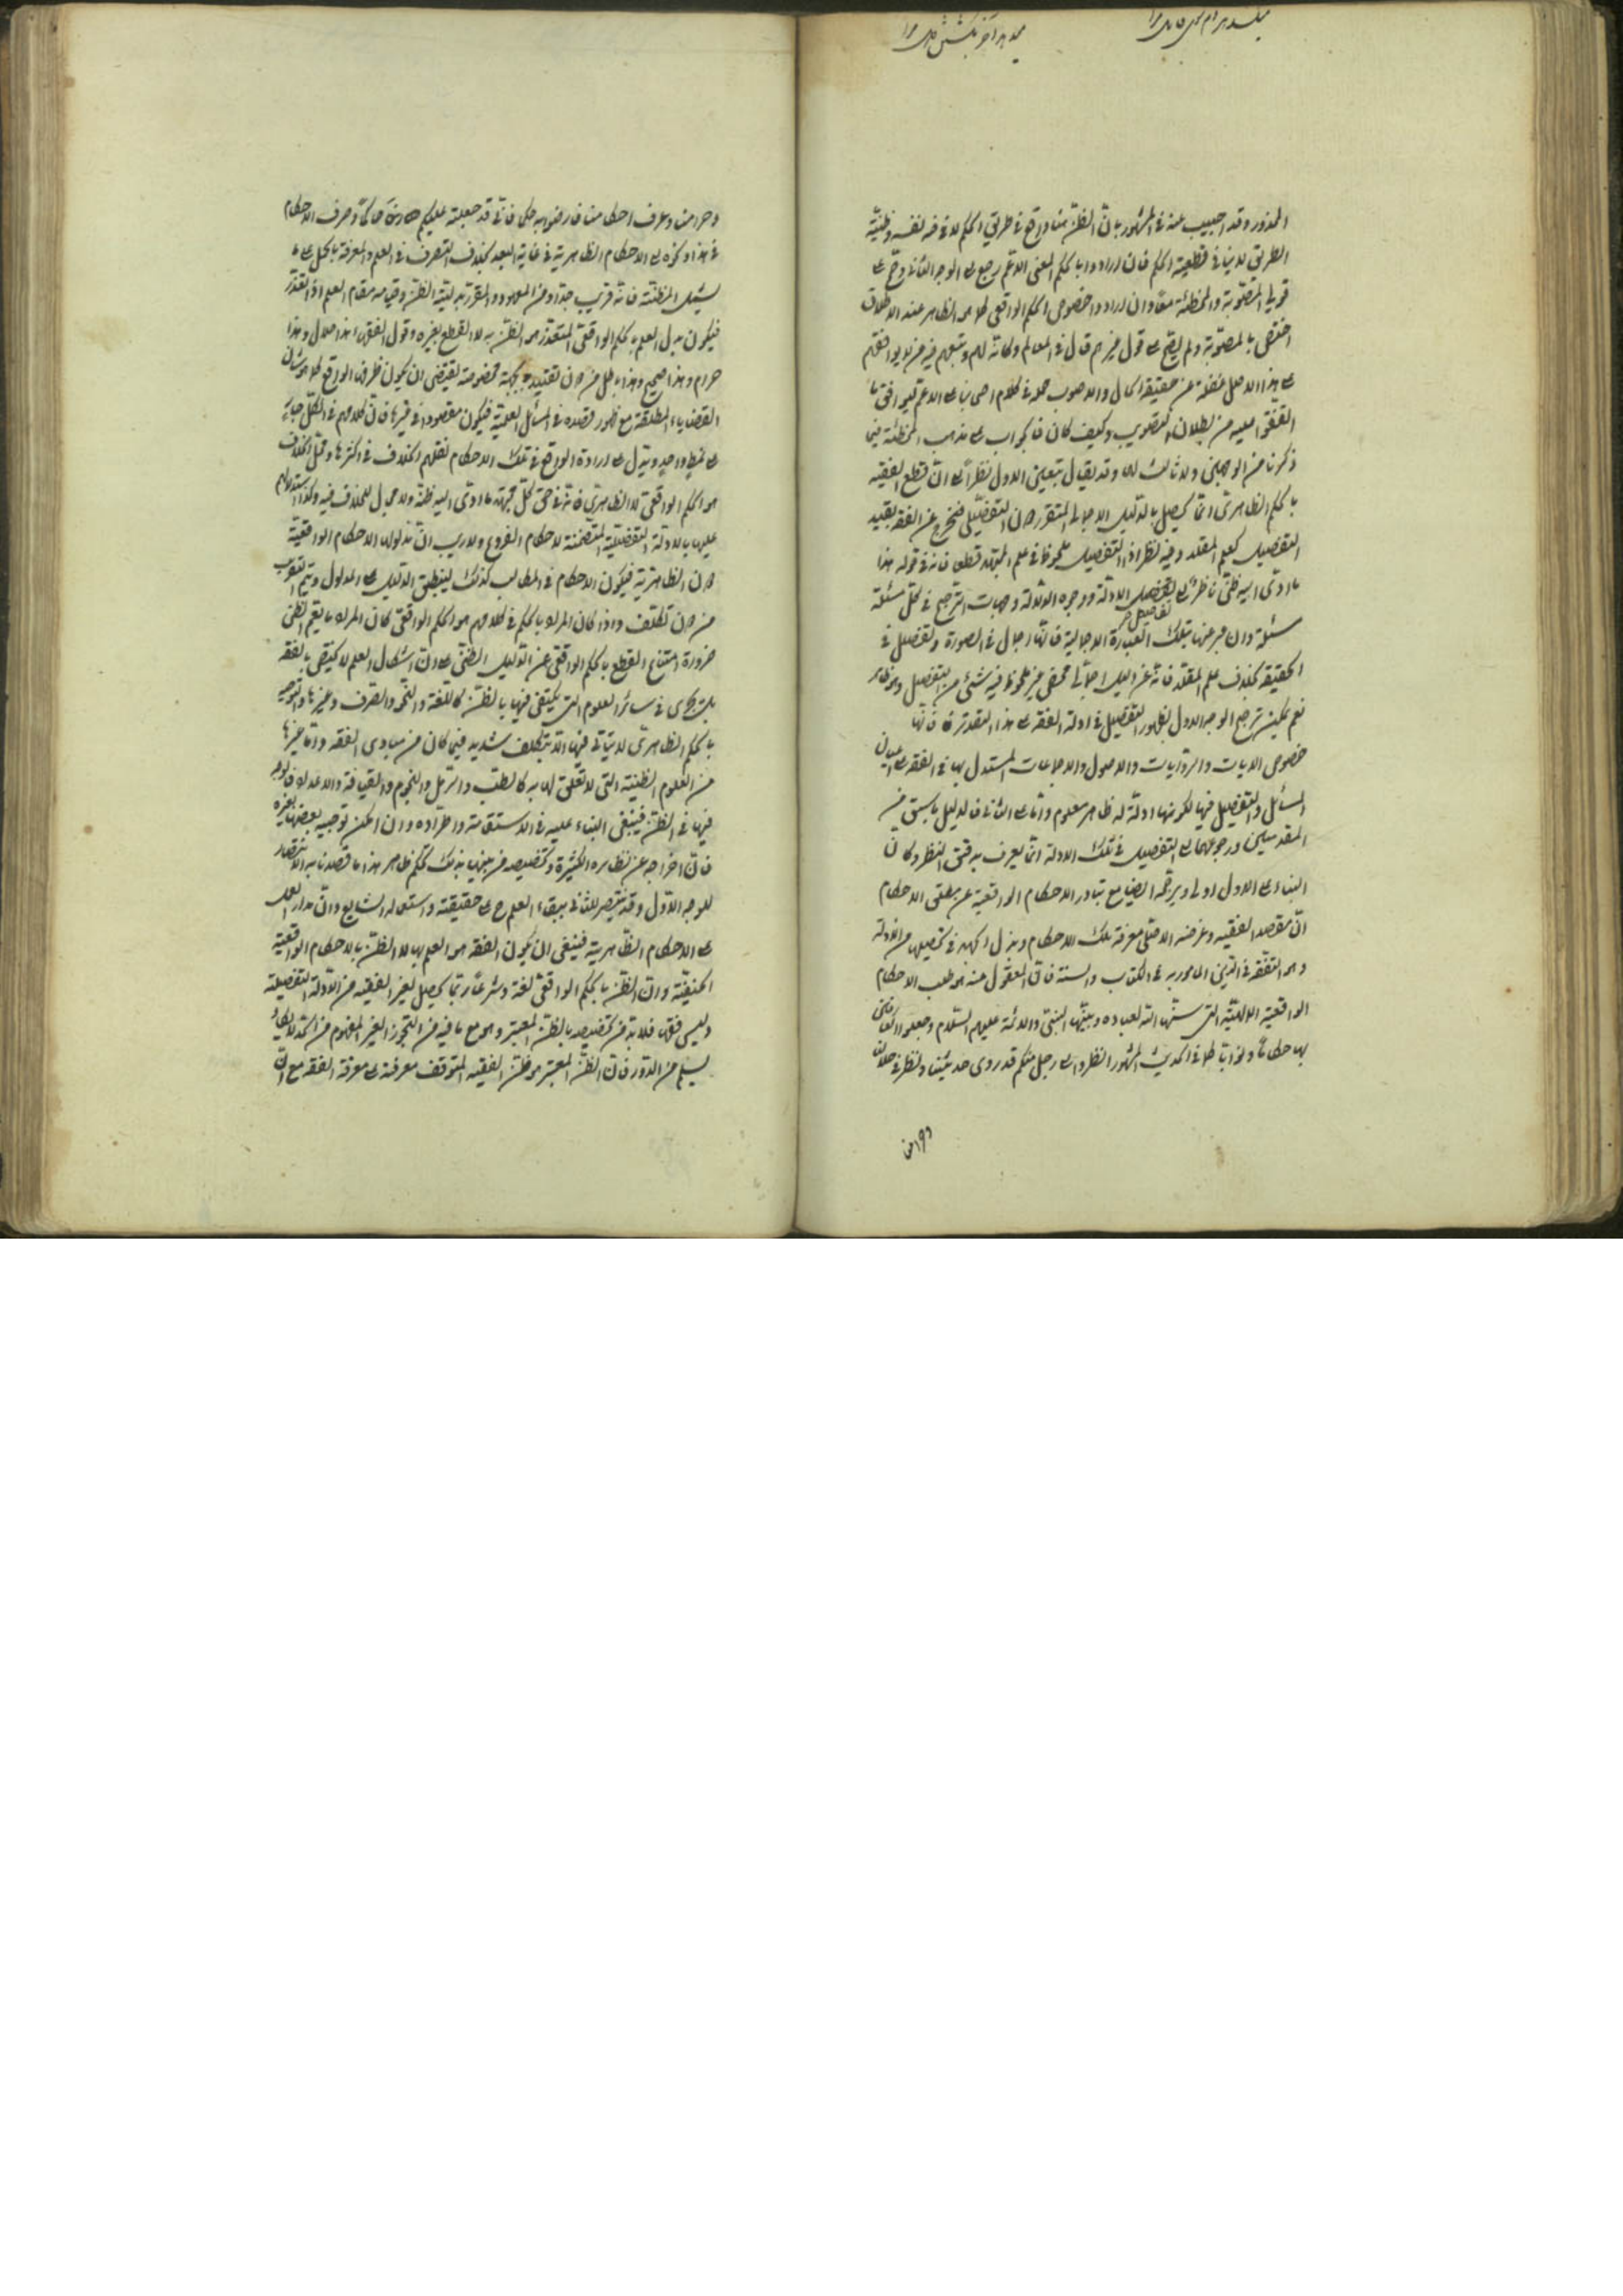 المذور وقد اجيب عنه في المشهور بان الظن هنا واقع في طريق الحكم لا في نفسه وظنية
الطريق لا ينافي قطعية الحكم فان ارادوا بالحكم المعنى الاعم رجع الى الوجه الثاني وتم على
المصوبة والمخطئة معا وان ارادوا خصوص الحكم الواقعي كما هو الظاهر عند الاطلاق
اختص بالمصوبة ولم يتم على قول غيرهم قال في المعالم وكانه لهم وتبعهم فيه من لا يوافقهم
على هذا الاصل غفلة عن حقيقة الحال والاصوب حمله في كلام اصحابنا على الاعم ليوافق ما
اتفقوا عليه من بطلان التصويب وكيف كان فالجواب على مذهب المخطئة فيما
ذكرنا من الوجهين ولا ثالث لها وقد يقال بتعين الاول نظرا الى ان قطع الفقيه
بالحكم الظاهري انما يحصل بالدليل الاجمالي المتقرر دون التفصيلي فيخرج عن الفقه بقيد
التفصيل كعلم المقلد وفيه نظر اذ التفصيل ملحوظ في علم المجتهد قطعا فانه في قوله هذا
ما ادى اليه ظني ناظر الى تفصيل الادلة ووجوه الدلالة وجهات الترجيح في كل مسئلة
مسئلة وان عبر عنها بتلك العبارة الاجمالية فانها اجمال في الصورة وتفصيل في
الحقيقة بخلاف علم المقلد فانه عن دليل اجمالي محض غير ملحوظ فيه شئ من التفصيل وهو ظاهر
نعم يمكن ترجيح الوجه الاول بظهور التفصيل في ادلة الفقه على هذا التقدير فانها
خصوص الايات والروايات والاصول والاجماعات المستدل بها في الفقه على اعيان
المسائل والتفصيل فيها لكونها ادلة له ظاهر معلوم واما على الثاني فالدليل ما سبق من
المقدمتين ورجوعهما الى التفصيل في تلك الادلة انما يعرف بدقيق النظر وكان
البناء على الاول اولى ويرجحه ايضا مع تبادر الاحكام الواقعية عن مطلق الاحكام
ان مقصد الفقيه وغرضه الاصلي معرفة تلك الاحكام وبذل الجهد في تحصيلها من الادلة
وهو التفقه في الدين المامور به في الكتاب والسنة فان المعقول منه هو طلب الاحكام
الواقعية الالهية التي سنها الله لعباده وبينها النبي والائمة عليهم السلام وجعلوا العارفين
بها حكاما ونوابا كما في الحديث المشهور انظروا الى رجل منكم قد روى حديثنا ونظر في حلالنا
وحرامنا وعرف احكامنا فارضوا به حكما فاني قد جعلته عليكم حاكما وصرف الاحكام
في هذا ونحوه الى الاحكام الظاهرية في غاية البعد بخلاف التصرف في العلم والمعرفة بالحمل على ما
يشمل المظنة فانه قريب جدا ومن المعهود والمقرر بدلية الظن وقيامه مقام العلم اذا تعذر
فيكون بدل العلم بالحكم الواقعي المتعذر هو الظن به لا القطع بغيره وقول الفقهاء هذا حلال وهذا
حرام وهذا صحيح وهذا باطل من دون تقييد بجهة مخصوصة يقتضي ان يكون ظرفه الواقع كما هو شان
القضايا المطلقة مع ظهور قصده في المسائل العلمية فيكون مقصودا في غيرها فان كلامهم في الكل جار
على نمط واحد ويدل على ارادة الواقع في تلك الاحكام نقلهم الخلاف في اكثرها ومحل الخلاف
هو الحكم الواقعي لا الظاهري فانه في حق كل مجتهد ما ادى اليه ظنه ولا مجال للخلاف فيه وكذا استدلالهم
عليها بالادلة التفصيلية المتضمنة لاحكام الفروع ولا ريب ان مدلولها الاحكام الواقعية
دون الظاهرية فيكون الاحكام في المطالب كذلك لينطبق الدليل على المدلول ويتم التقريب
من دون تكلف واذا كان المراد بالحكم في كلامهم هو الحكم الواقعي كان المراد ما يعم الظن
ضرورة امتناع القطع بالحكم الواقعي عن الدليل الظني على ان اشكال العلم لا يختص بالفقه
بل يجري في سائر العلوم التي يكتفى فيها بالظن كاللغة والنحو والصرف وغيرها والتوجيه
بالحكم الظاهري لا يتاتى فيها الا بتكلف شديد فيما كان من مبادي الفقه واما غيرها
من العلوم الظنية التي لا تعلق لها به كالطب والرمل والنجوم والقيافة والاعداد فالوجه
فيها في الظن فينبغي البناء عليه في الاستقامة واطراده وان امكن توجيه بعضها بغيره
فان اخراجه عن نظائره الكثيرة وتخصيصه من بينها بذلك تحكم ظاهر هذا ما قصدنا به الانتصار
للوجه الاول وقد ينتصر للثاني ببقاء العلم ح على حقيقته واستعماله الشايع وان مدار العمل
على الاحكام الظاهرية فينبغي ان يكون الفقه هو العلم بها لا الظن بالاحكام الواقعية
وان الظن بالحكم الواقعي لغة وشرعا ربما يحصل لغير الفقيه من الادلة التفصيلية
وليس فقها فلا بد من تخصيصه بالظن المعتبر وهو مع ما فيه من التجوز الغير المفهوم من الحد لا يكاد
يسلم من الدور فان الظن المعتبر هو ظن الفقيه المتوقف معرفته على معرفة الفقه مع ان